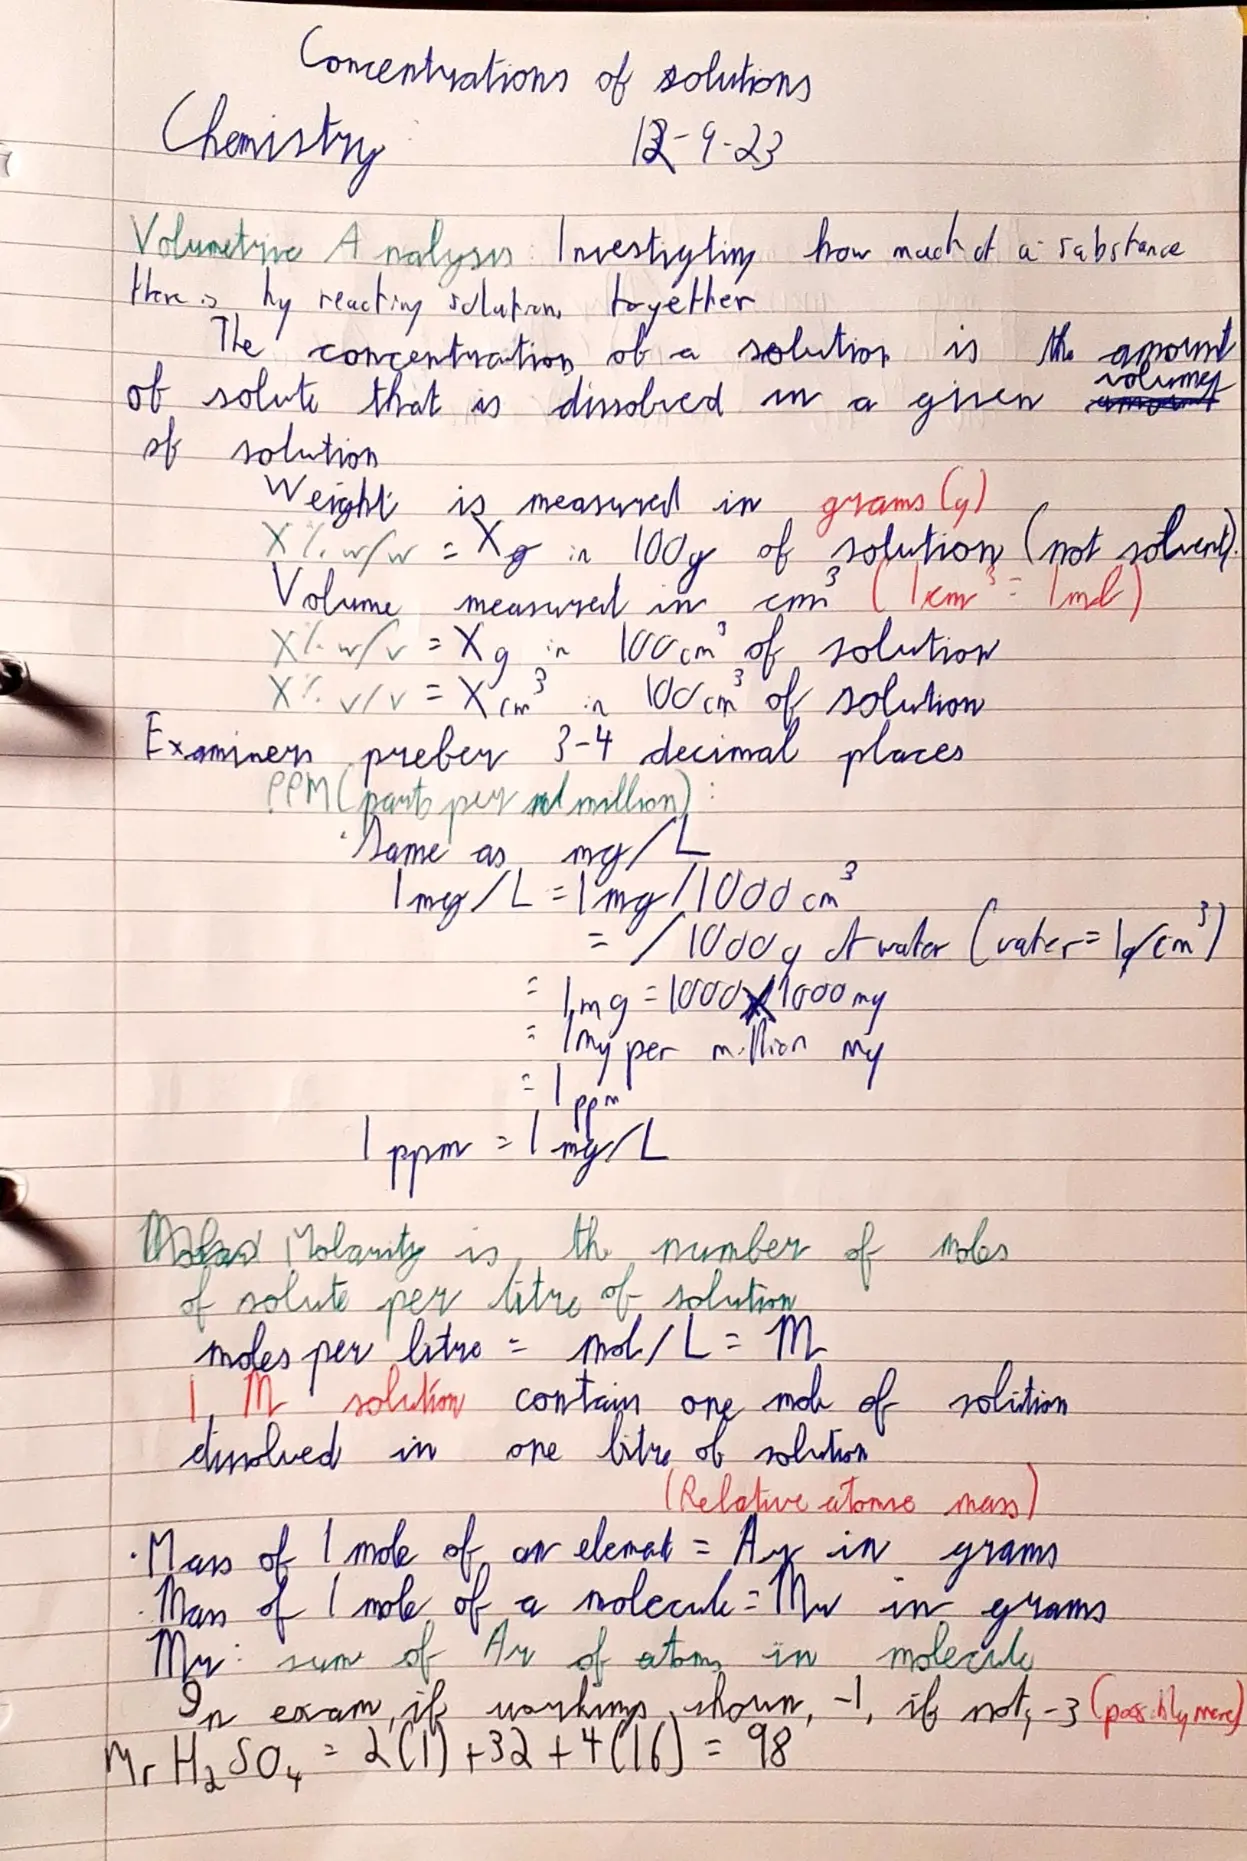 Concentrations of solutions
Chemistry 12-9-23
Volumetric Analysis: Investigting how much of a substance
there is by reacting solutions together
The concentration of a solution is the amount
of solute that is dissolved in a given volume
of solution
Weight is measured in grams (g)
X % w/w = X g in 100g of solution (not solvent).
Volume measured in cm³ (1cm³ = 1ml)
X % w/v = X g in 100cm³ of solution
X % v/v = X cm³ in 100cm³ of solution
Examiners prefer 3-4 decimal places
PPM (parts per million):
Same as mg/L
1mg/L = 1mg/1000cm³
= /1000g of water (water = 1g/cm³)
= 1mg = 1000X1000mg
= 1mg per million mg
= 1ppm
1ppm = 1mg/L
Molarity is the number of moles
of solute per litre of solution
moles per litre = mol/L = M
1 M solution contain one mole of solition
dissolved in one litre of solution
(Relative atomic mass)
• Mass of 1 mole of an element = Ar in grams
• Mass of 1 mole of a molecule = Mr in grams
Mr: sum of Ar of atoms in molecule
In exam, if workings shown, -1, if not, -3 (possibly more)
Mr H₂SO₄ = 2(1)+32+4(16) = 98